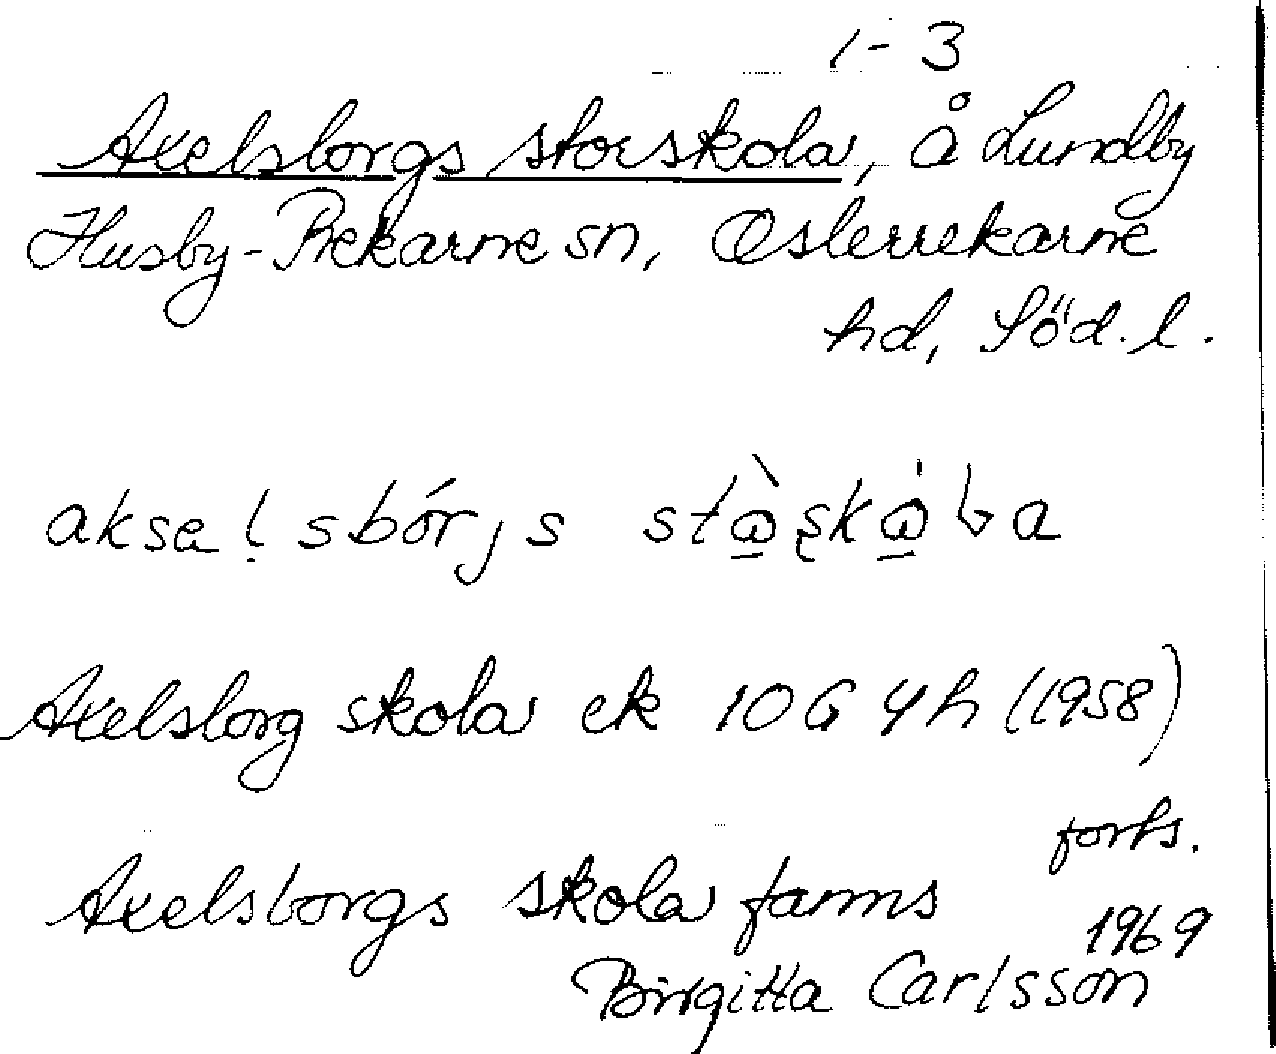 1-3
Axelsborgs storskola, å Lundby
Husby-Rekarne sn, Österrekarne
hd, Söd. l.
aksel̥sbórjs stò̱ʂkó̱ɽa
Axelsborg skola ek 10G 4h (1958)
forts.
Axelsborgs skola fanns
1969
Birgitta Carlsson